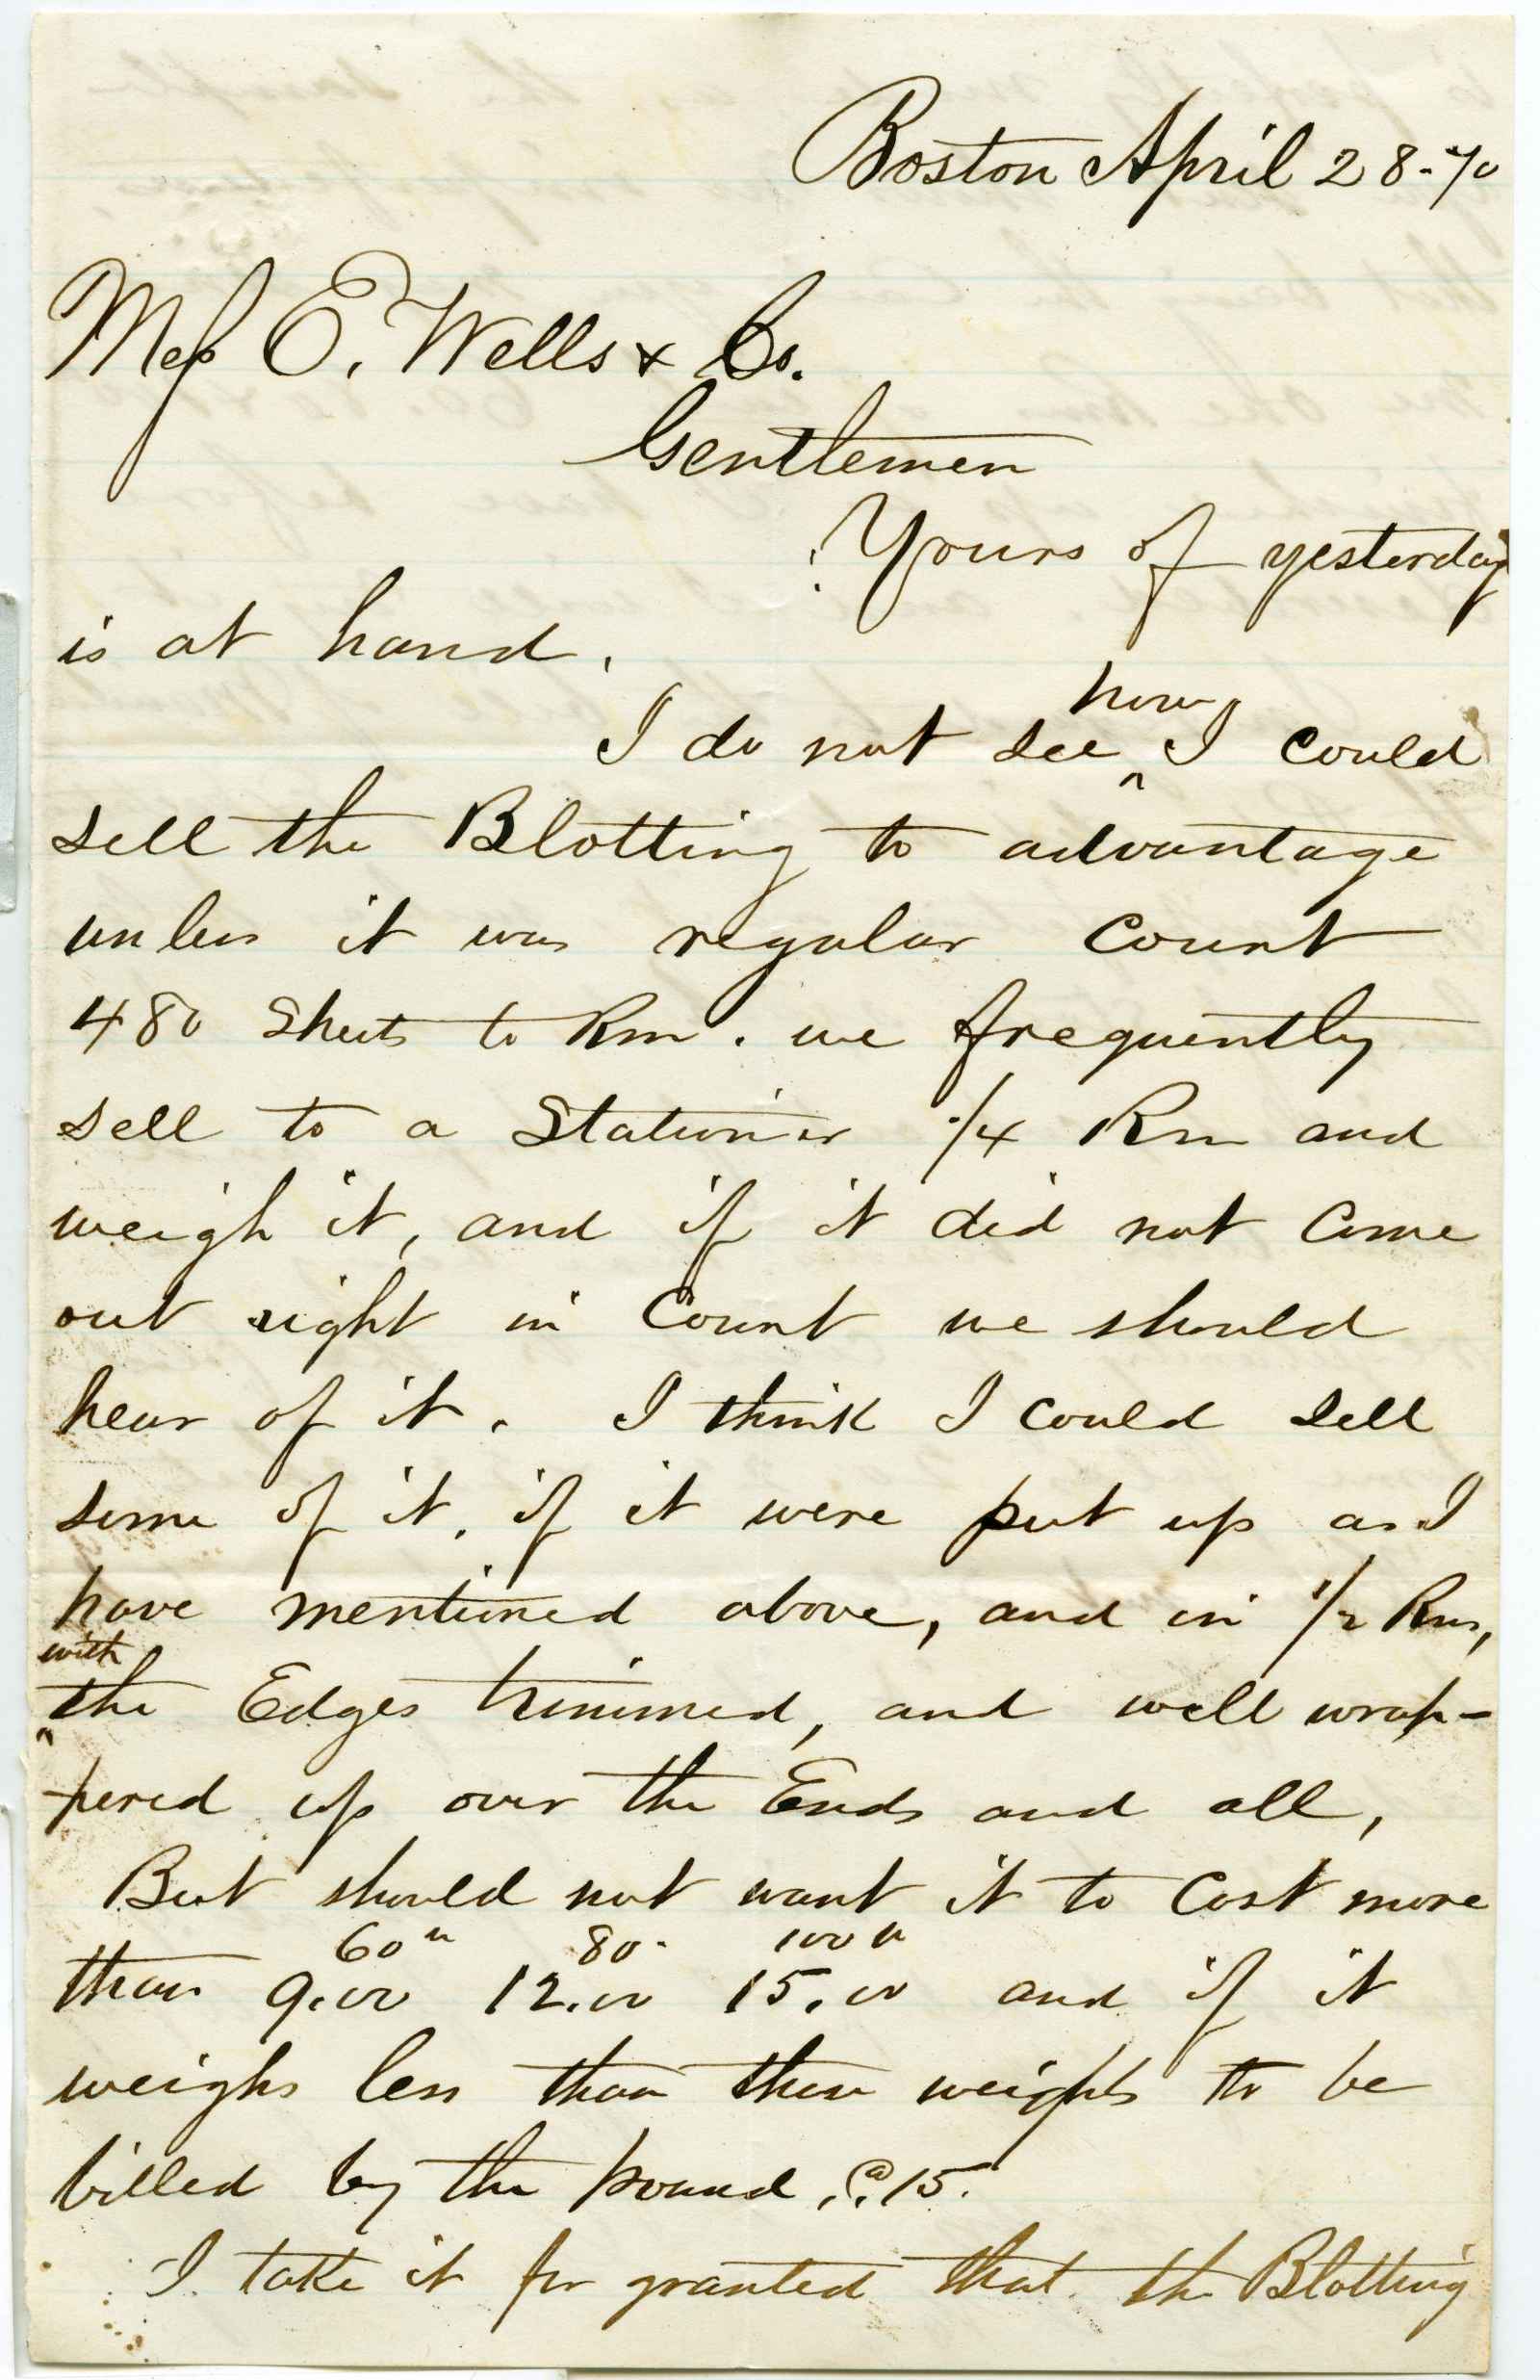 Boston April 28-70
Mess E. Wells & Co.
Gentlemen
Yours of yesterday
is at hand.
I do not see ^how I could
sell the Blotting to advantage
unless it was regular Count
480 Sheets to Rm. we frequently
sell to a Stationer 1/4 Rm and
weigh it, and if it did not Come
out right in Count we should
hear of it. I think I could sell
some of it, if it were put up as I
have mentioned above, and in 1/2 Rms,
^with the Edges trimmed, and well wrap-
-pered up over the Ends and all,
But should not want it to Cost more
60 80 100
than 9.00 12.00 15.00 and if it
weighs less than these weights to be
billed by the pound, @ 15.
I take it for granted that the Blotting